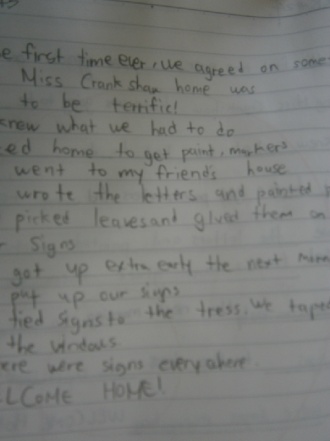 e first time ever, we agreed on some
Miss Crankshaw home was
to be terrific!
knew what we had to do
ed home to got paint, markers
went to my friend's house
wrote the letters and painted
picked leaves and glued them on
Signs
got up extra early the next
put up our signs
tied signs to the tress. We taped
the windows.
ere were signs everywhere.
LCOME HOME!